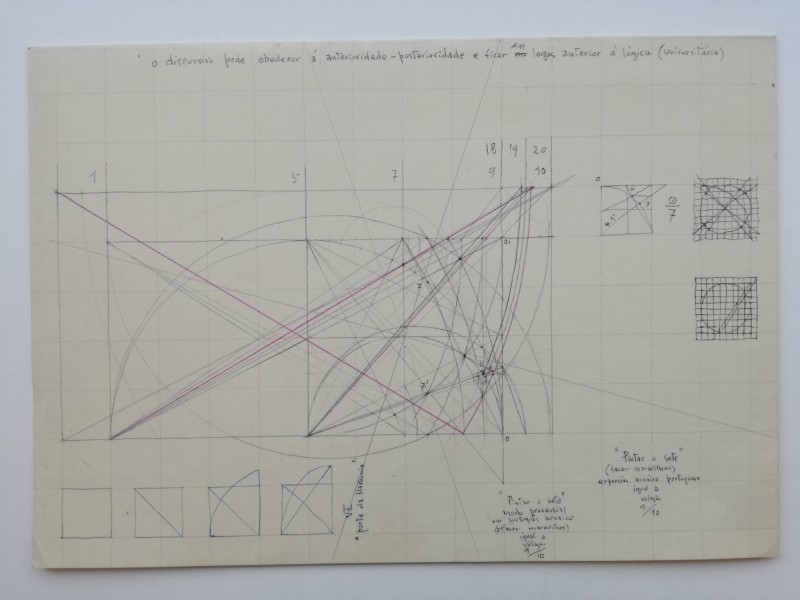 o discursivo pode obedecer á, anterioridade - posterioridade e ficar em logos anterior á lógica (universitária)
18 19 20
1 5 7 9 10
0
7
7'
"Pintar o sete"
(fazer maravilhas)
expressão arcáica portuguesa
igual a
relação
9/10
"Pintar o sete"
modo proverbial
em português arcáico
(fazer maravilhas)
igual a
relação
9/10
√2
"porta da Harmonia"